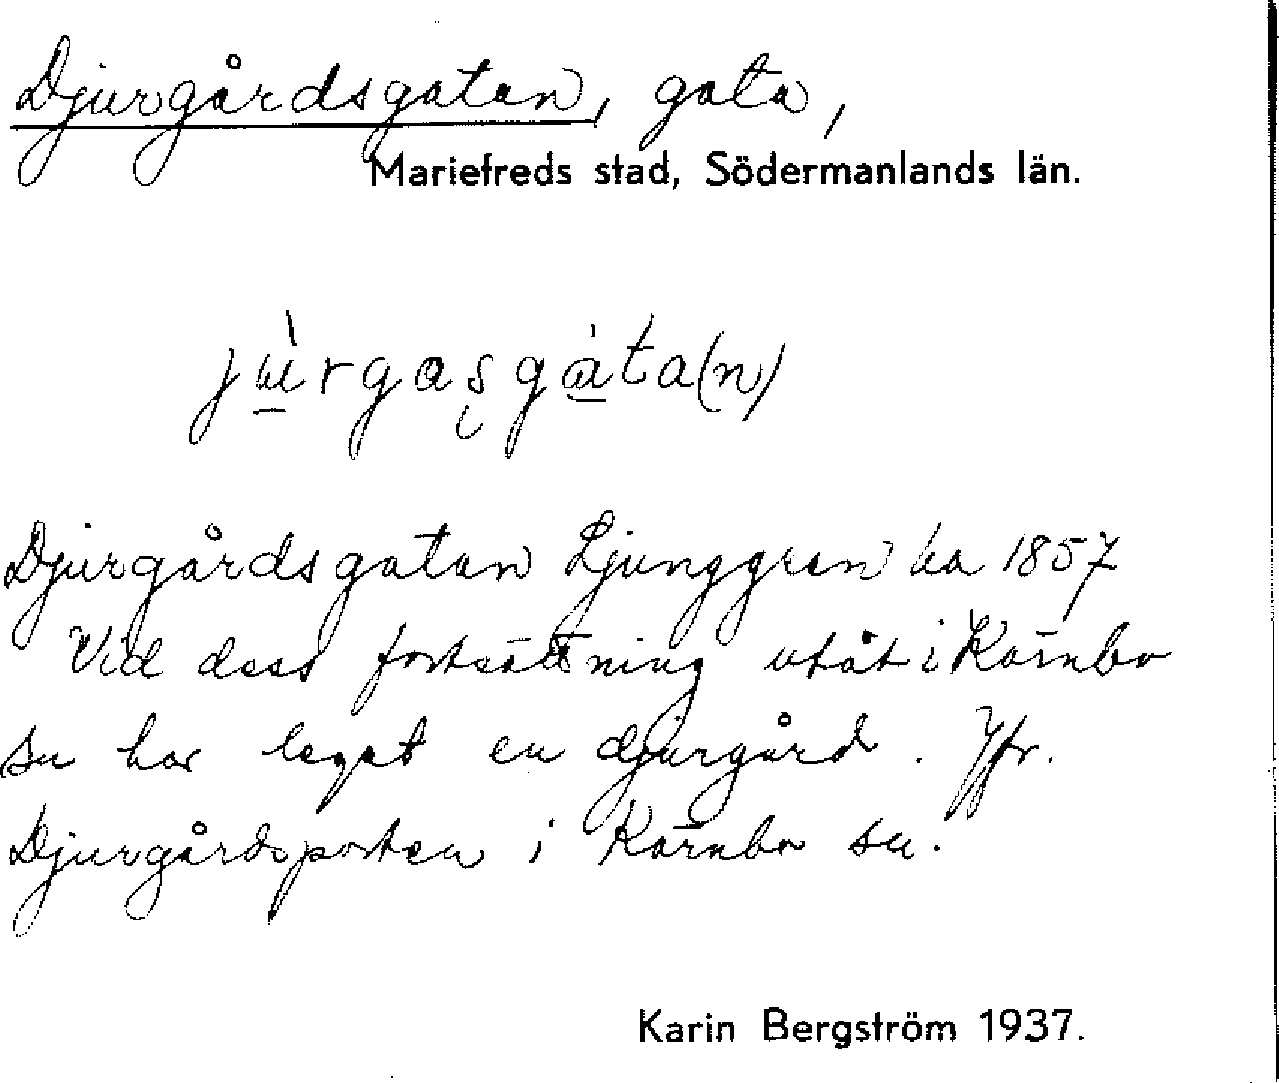 Djurgårdsgatan, gata,
Mariefreds stad, Södermanlands län.
jùrgasgàta(n)
Djurgårdsgatan Ljunggren ka 1857
Vid dess fortsättning utåt i Kärnbo
sn har legat en djurgård. Jfr.
Djurgårdsporten i Kärnbo sn.
Karin Bergström 1937.